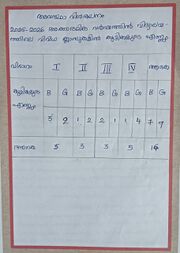 അവസ്ഥാ വിശകലനം
2025-2026 അക്കാദമിക വർഷത്തിൽ വിദ്യാലയ
ത്തിലെ വിവിധ ക്ലാസുകളിൽ കുട്ടികളുടെ എണ്ണം
വിഭാഗം I II III IV ആകെ
കുട്ടികളുടെ എണ്ണം B G B G B G B G B G
3 2 1 2 2 1 1 4 7 9
ആകെ 5 3 3 5 16